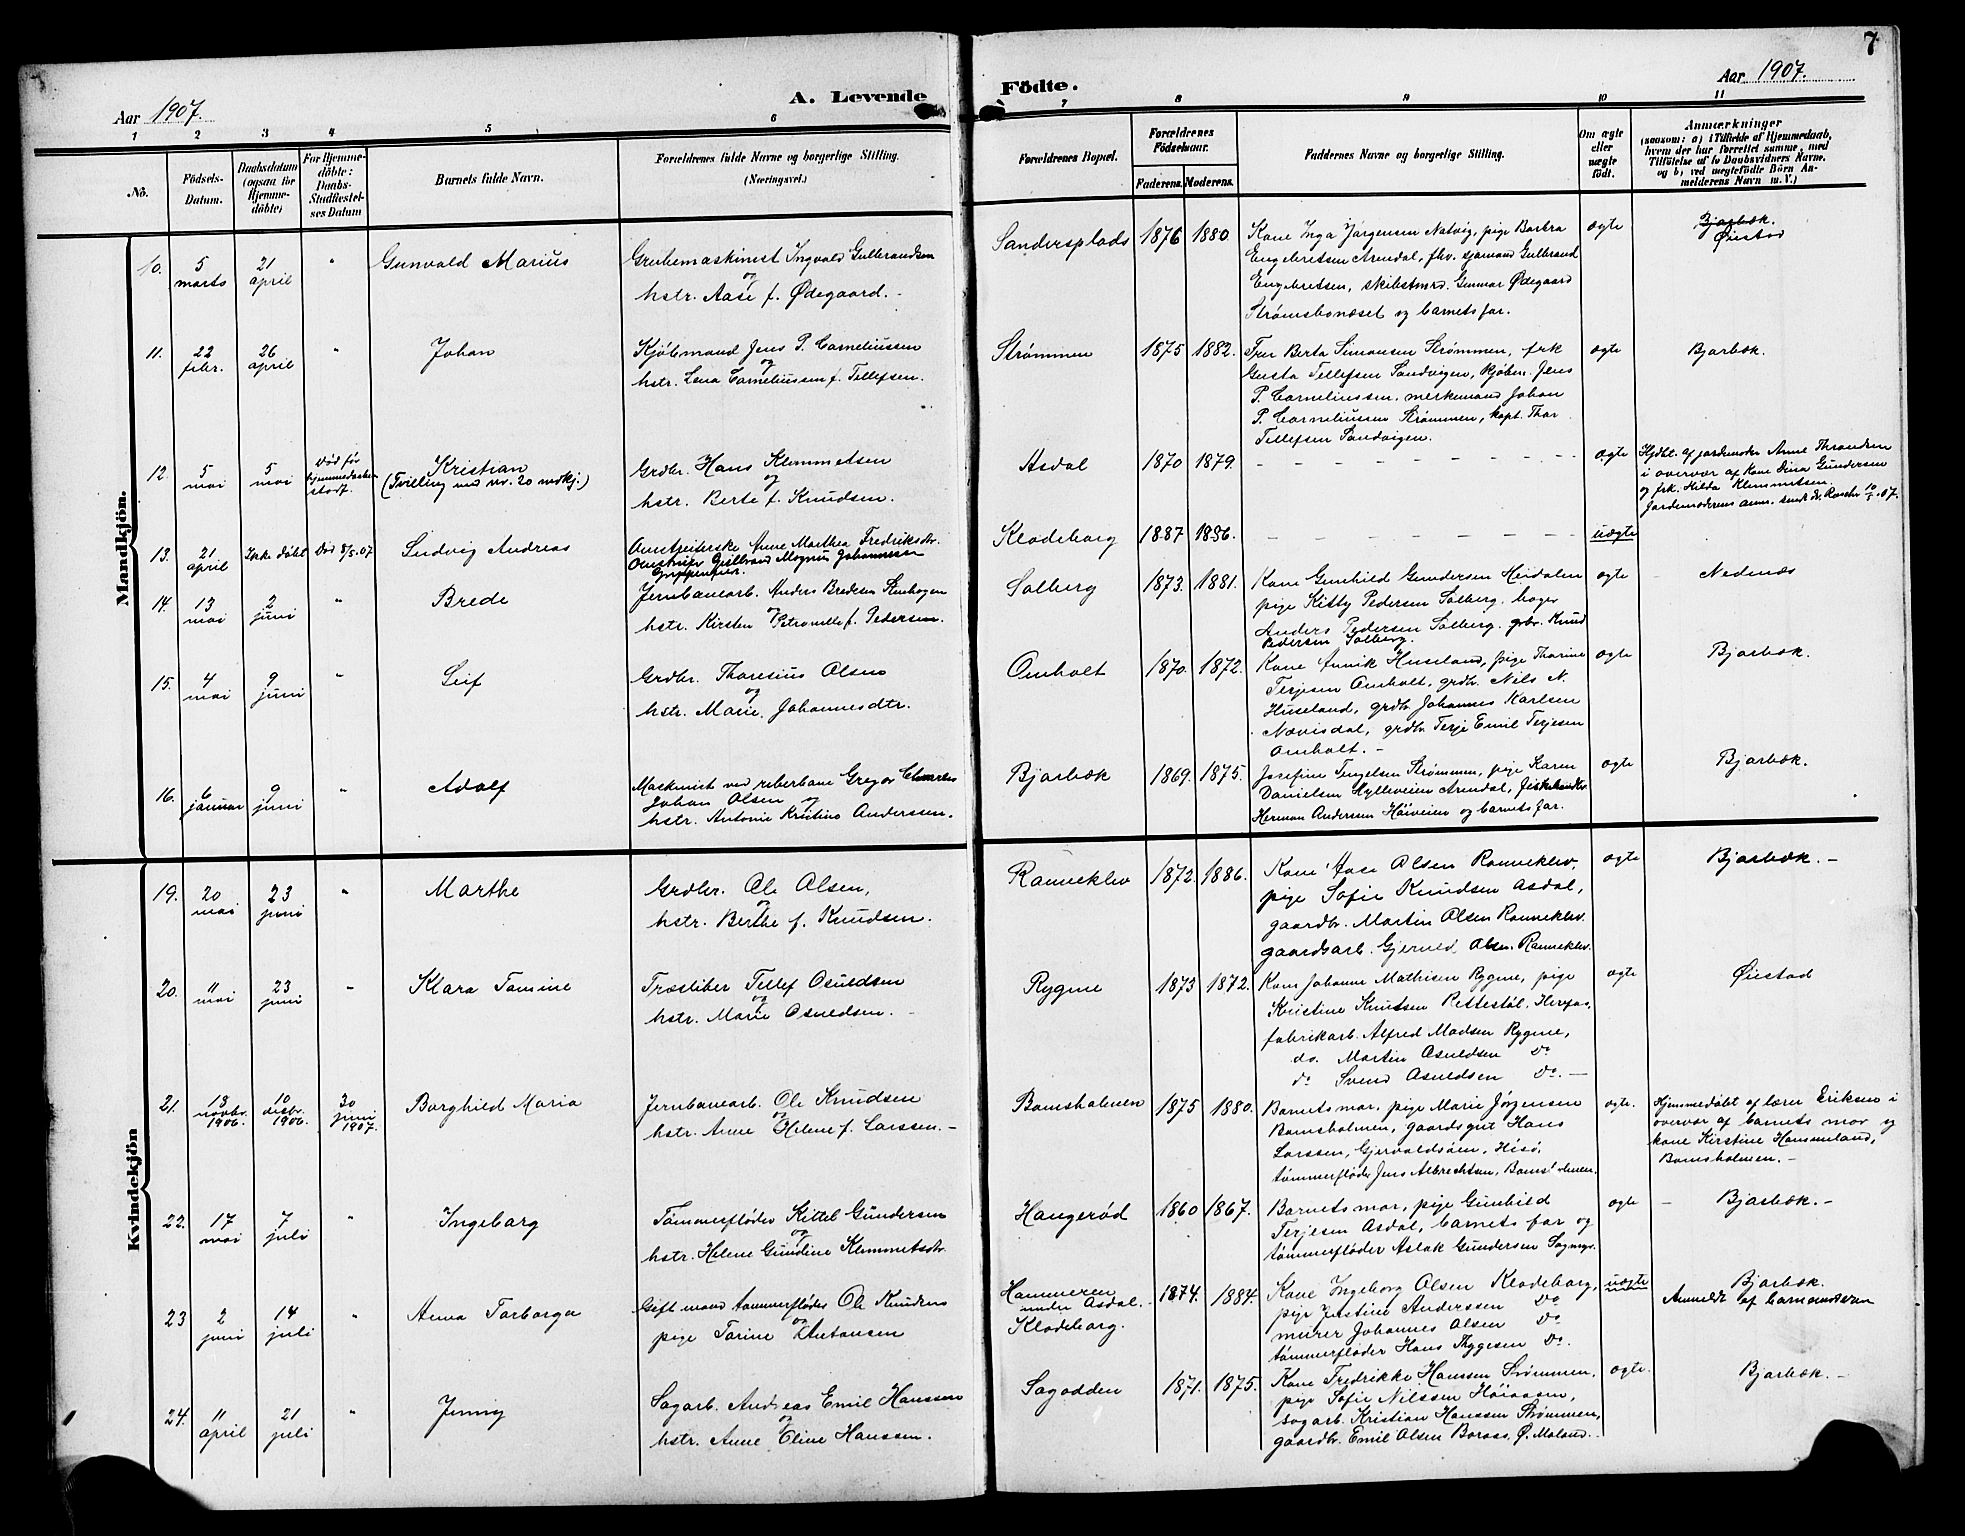 7
Aar 1907.
A. Levende
Födte.
Aar 1907.
1 2 3 4 5 6
7 8 9 10 11
No.
Födsels-
Datum.
Daabsdatum
(ogsaa for
Hjemme-
döbte)
For Hjemme-
döbte:
Daabs-
Stadfæstel-
ses Datum
Barnets fulde Navn.
Forældrenes fulde Navne og borgerlige Stilling.
(Næringsvei.)
Forældrenes Bopæl.
Forældrenes
Födselsaar.
Faderens. Moderens.
Faddernes Navne og borgerlige Stilling.
Om ægte
eller
uægte
födt.
Anmærkninger
(saasom: a) i Tilfælde af Hjemmedaab,
hvem der har forrettet samme, med
Tilföielse af to Daabsvidners Navne,
og b) ved uægtefödte Börn An-
melderens Navn m. V.)
Mandkjön.
10.
5
marts
21
april
"
Gunvald Marius
Grubemaskinest Ingvald Gulbrandsen
og
hstr. Aase f. Ødegaard.
Sandersplads
1876
1880.
Kone Inga Jørgensen Natvig, pige Barbra
Engebretsen Arendal, fhv. sjømand Gulbrand
Engebretsen, skibstmrd. Gunnar Ødegaard
Strømsbonæset og barnets far.
ægte
Bjorbæk.
Øiestad
11.
22
febr.
26
april
"
Johan
Kjøbmand Jens P. Corneliussen
og
hstr. Lena Corneliussen f. Tellefsen.
Strømmen
1875
1882.
Fru Berta Simonsen Strømmen, frk
Gusta Tellefsen Sandvigen, kjøbm. Jens
P. Corneliussen, merkemand Johan
P. Corneliussen Strømmen, kapt. Thor
Tellefsen Sandvigen.
ægte
Bjorbæk.
12.
5
mai
5
mai
Død før
stadf.
Kristian
(Tvilling med nr. 20 mdkj.)
Grdbr. Hans Klemmetsen
og
hstr. Berte f. Knudsen.
Asdal
1870
1879.
ægte
Hjdbt. af jordmoder Anne Thronsen
i overvær af kone Dina Gundersen
og frk. Hilda Klemmetsen.
13.
21
april
Ikke døbt
Død 8/5.07
Ludvig Andreas
Omstreiferske Anne Marthea Fredriksdtr.
Omstreifer Gulbrand Magnus Johannessen
Klodeborg
1887
1886.
uægte
14.
13
mai
2
juni
"
Brede
Jernbanearb. Anders Bredesen Stenhagen
og
hstr. Kirsten Petronelle f. Pedersen.
Solberg
1873.
1881.
Kone Gunhild Gundersen Heidalen
pige Kitty Pedersen Solberg, bager
Anders Pedersen Solberg, grbr. Knud
Pedersen Solberg.
ægte
Nedenæs
15.
4
mai
9
juni
"
Leif
Grdbr. Thoresius Olsen
og
hstr. Marie Johannesdtr.
Omholt
1870.
1872.
Kone Annik Huseland, pige Thorine
Terjesen Omholt, grdbr. Nils N.
Huseland, grdbr Johannes Karlsen
Nævisdal, grdbr Terje Emil Terjesen
Omholt.
ægte
Bjorbæk.
16.
6
januar
9
juni
"
Adolf
Maskinist ved reberbane Gregor Charles
Johan Olsen og
hstr. Antonie Kristine Anderssen.
Bjorbæk
1869.
1875.
Josefine Tengelsen Strømmen, pige Karen
Danielsen Hylleveien Arendal,
Herman Andersen Høiveien og barnets far.
ægte
Bjorbæk.
Kvindekjön
19.
20
mai
23
juni
"
Marthe
Grdbr. Ole Olsen,
og
hstr. Berthe f. Knudsen.
Ranneklev
1872.
1886.
Kone Aase Olsen Ranneklev,
pige Sofie Knudsen Asdal,
gaardbr. Martin Olsen Ranneklev.
gaardsarb. Gjeruld Olsen Ranneklev.
ægte
Bjorbæk.
20.
11
mai
23
juni
"
Klara Tomine
Træsliber Tellef Osuldsen
og
hstr. Marie Osuldsen.
Rygene
1873
1872.
Kone Johanne Mathisen Rygene, pige
Kristine Knutsen Rettestøl, Herefos,
fabrikarb. Alfred Madsen Rygene,
do. Martin Osuldsen Do
do Svend Osuldsen Do.
ægte
Øiestad
21.
13
novbr.
1906.
10
desbr.
1906.
30
juni
1907.
Borghild Maria
Jernbanearb. Ole Knudsen
og
hstr. Anne Helene f. Larssen.
Bomsholmen
1875
1880.
Barnets mor, pige Marie Jørgensen
Bomsholmen, gaardsgut Hans
Larssen, Gjervoldsøen, Hisø,
tømmerfløder Jens Albrechtsen, Bomsholmen.
ægte.
Hjemmedøbt af lærer Eriksen i
overvær af barnets mor og
kone Kirstine Hammeland,
Bomsholmen.
22.
17
mai
7
juli
"
Ingeborg
Tømmerfløder Kittel Gundersen
og
hstr. Helene Gundine Klemmetsdtr.
Haugerød
1860
1867.
Barnets mor, pige Gunhild
Terjesen Asdal, barnets far og
tømmerfløder Aslak Gundersen
ægte
Bjorbæk.
23
2
juni
14
juli
"
Anna Torborga
Gift mand tømmerfløder Ole Knudsen
og
pige Torine Antonsen
Hammeren
under Asdal.
Klodeborg.
1874.
1884.
Kone Ingeborg Olsen Klodeborg,
pige Justine Anderssen Do
murer Johannes Olsen Do
tømmerfløder Hans Thygesen Do.
uægte
Bjorbæk.
Anmeldt af barnemoderen
24.
11
april
21
juli
"
Jenny
Sagarb. Andreas Emil Hanssen
og
hstr. Anne Eline Hanssen.
Sagodden
1871.
1875.
Kone Fredrikke Hansen Strømmen,
pige Sofie Nilssen Høiaasen,
sagarb. Kristian Hanssen Strømmen,
gaardbr. Emil Olsen Boraas, Ø. Moland.
ægte.
Bjorbæk.